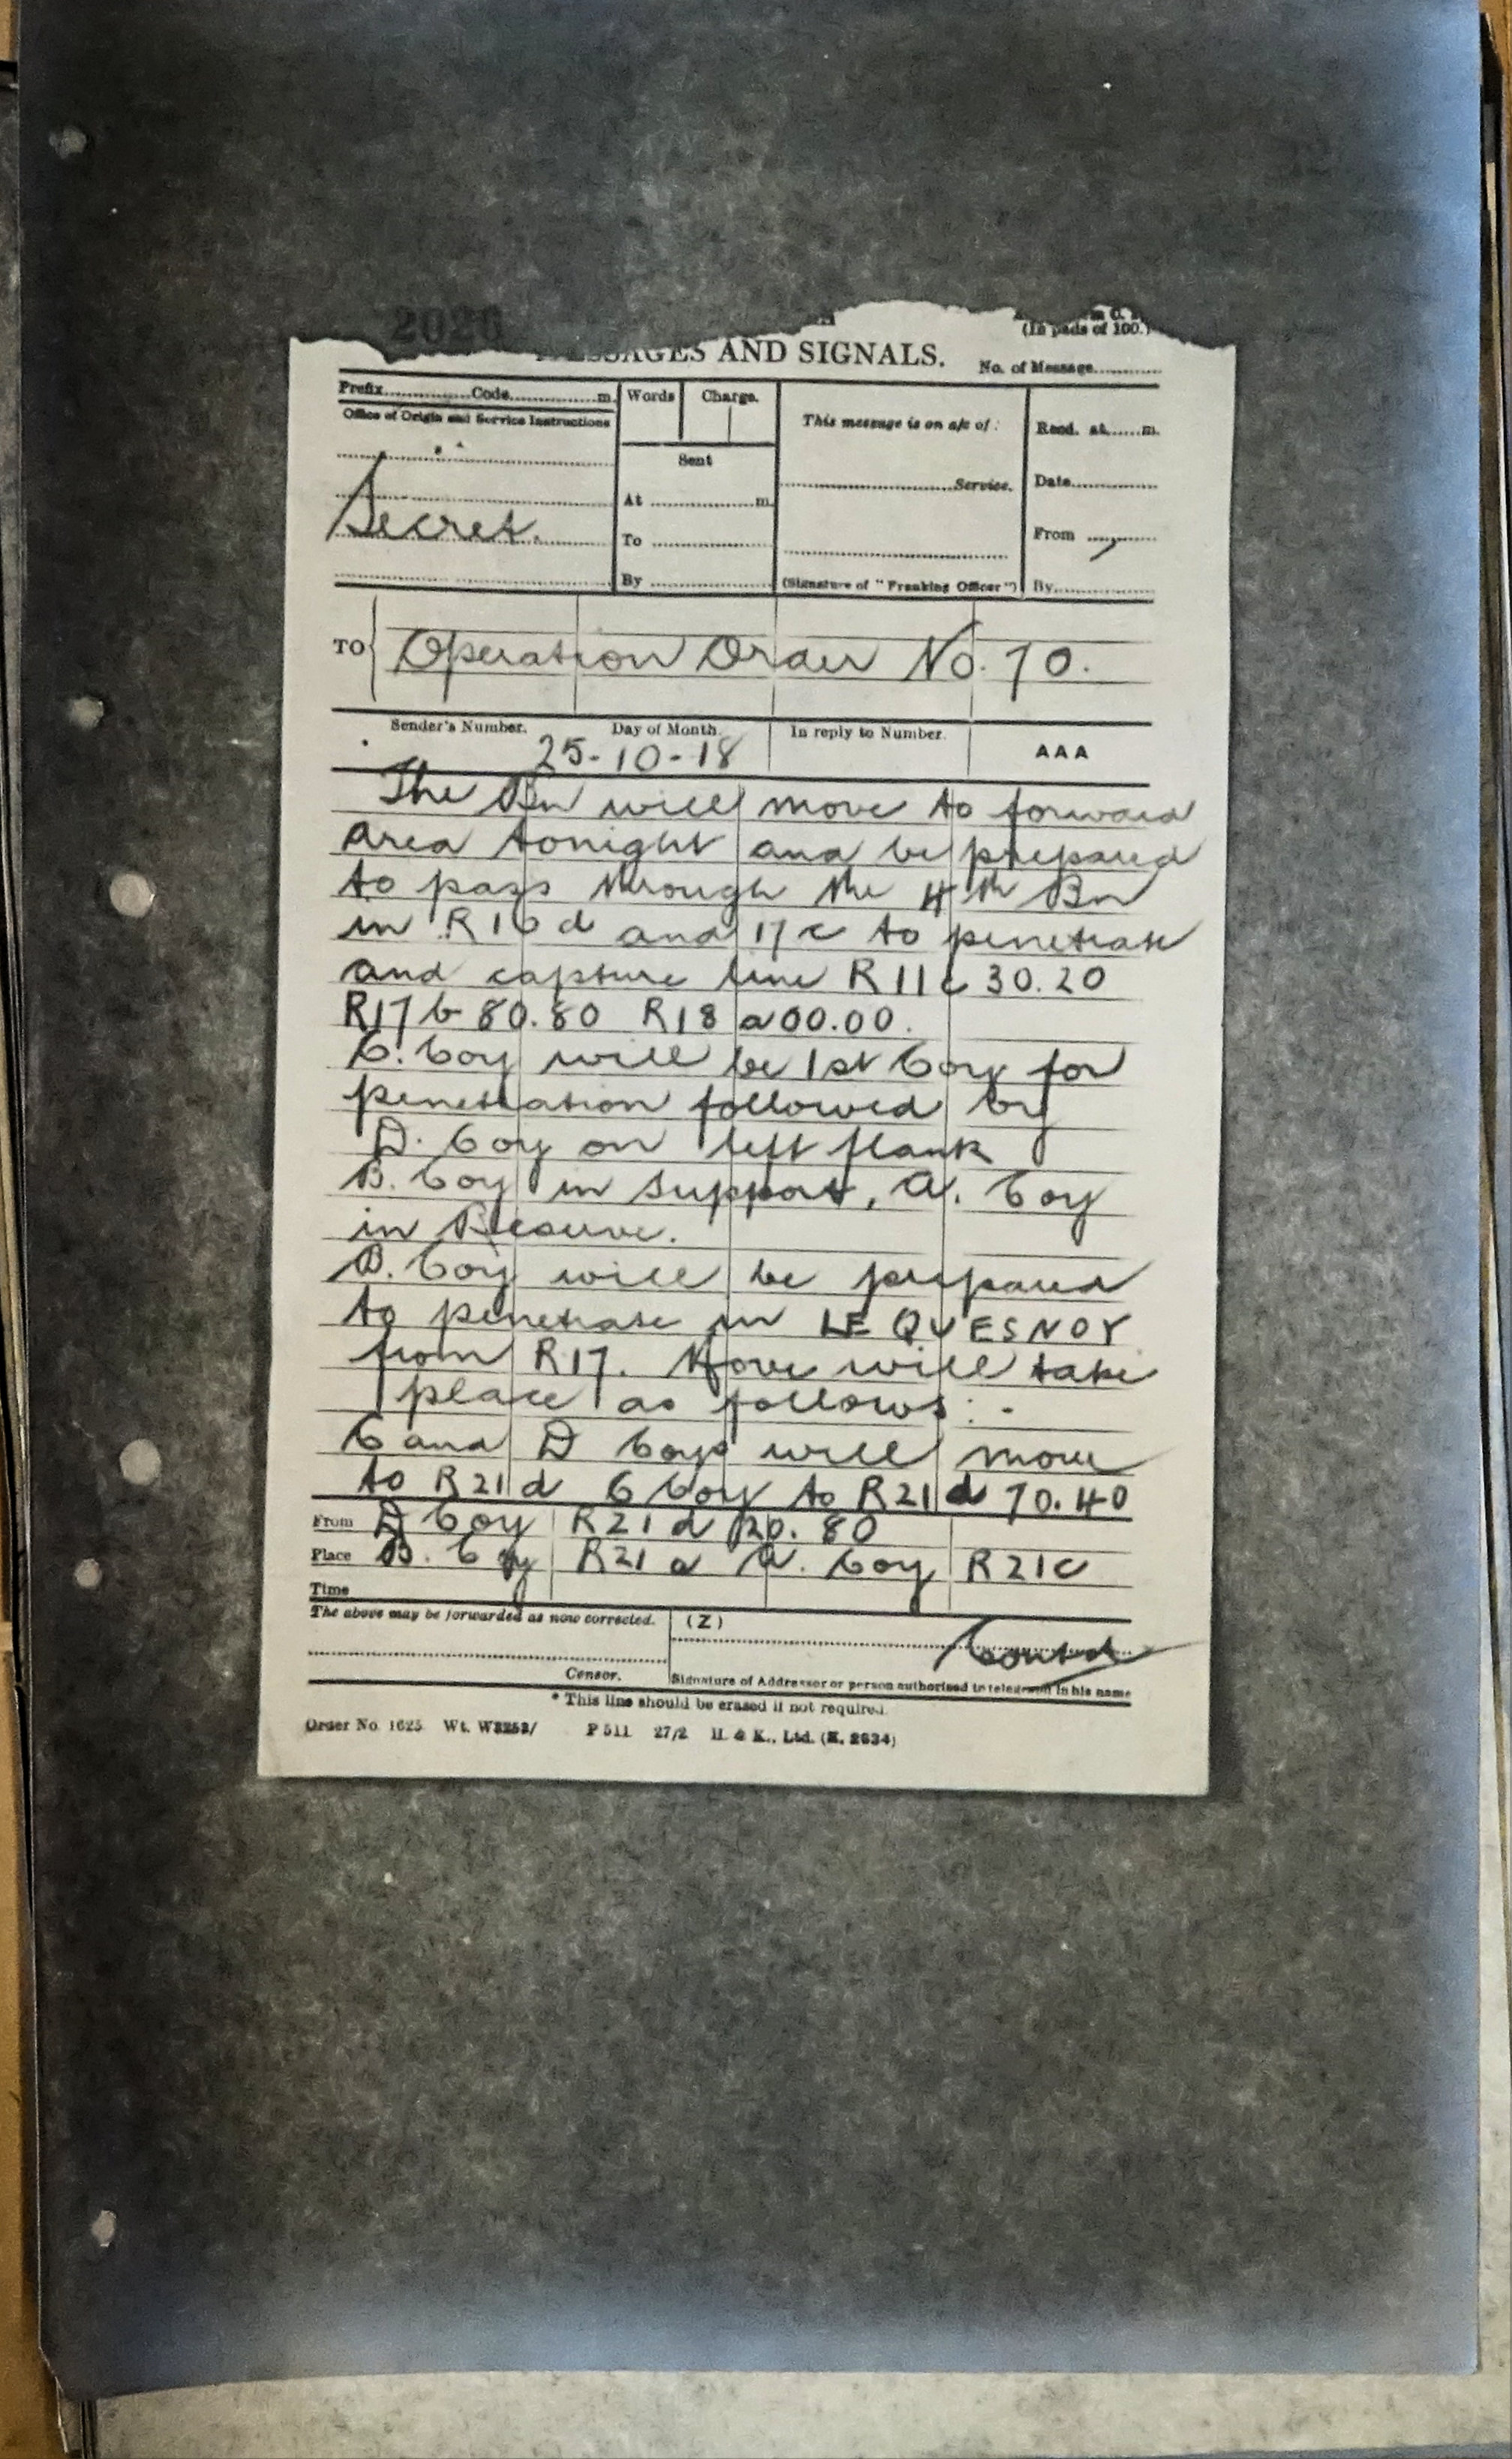 2026
MESSAGES AND SIGNALS.
(In pads of 100.)
No. of Message............
Prefix............Code............m.
Words Charge.
Office of Origin and Service Instructions
This message is on a/c of:
Recd. at......m.
Sent
............Service.
Date............
At............m.
Secret.
To............
From............
By............
(Signature of "Franking Officer")
By............
TO Operation Order No. 70.
Sender's Number. Day of Month. In reply to Number. AAA
25-10-18
The Bn will move to forward
area tonight and be prepared
to pass through the 4th Bn
in R16d and 17c to penetrate
and capture line R11c 30.20
R17b 80.80 R18a00.00.
C. Coy will be 1st Coy for
penetration followed by
D. Coy on left flank
B. Coy in support, A. Coy
in Reserve.
B. Coy will be prepared
to penetrate in LE QUESNOY
from R17. Move will take
place as follows:-
C and D Coys will move
to R21d C Coy to R21d 70.40
From D Coy R21d 20.80
Place B. Coy R21a A. Coy R21c
Time
The above may be forwarded as now corrected. (Z)
Contd
Censor. Signature of Addressor or person authorised to telegraph in his name
* This line should be erased if not required.
Order No. 1625 Wt. W3253/ P 511 27/2 H. & K., Ltd. (E. 2634)